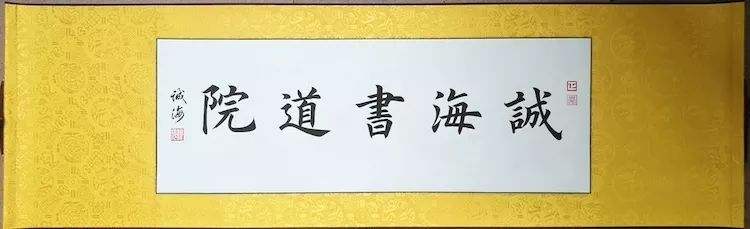 誠海書道院
誠海